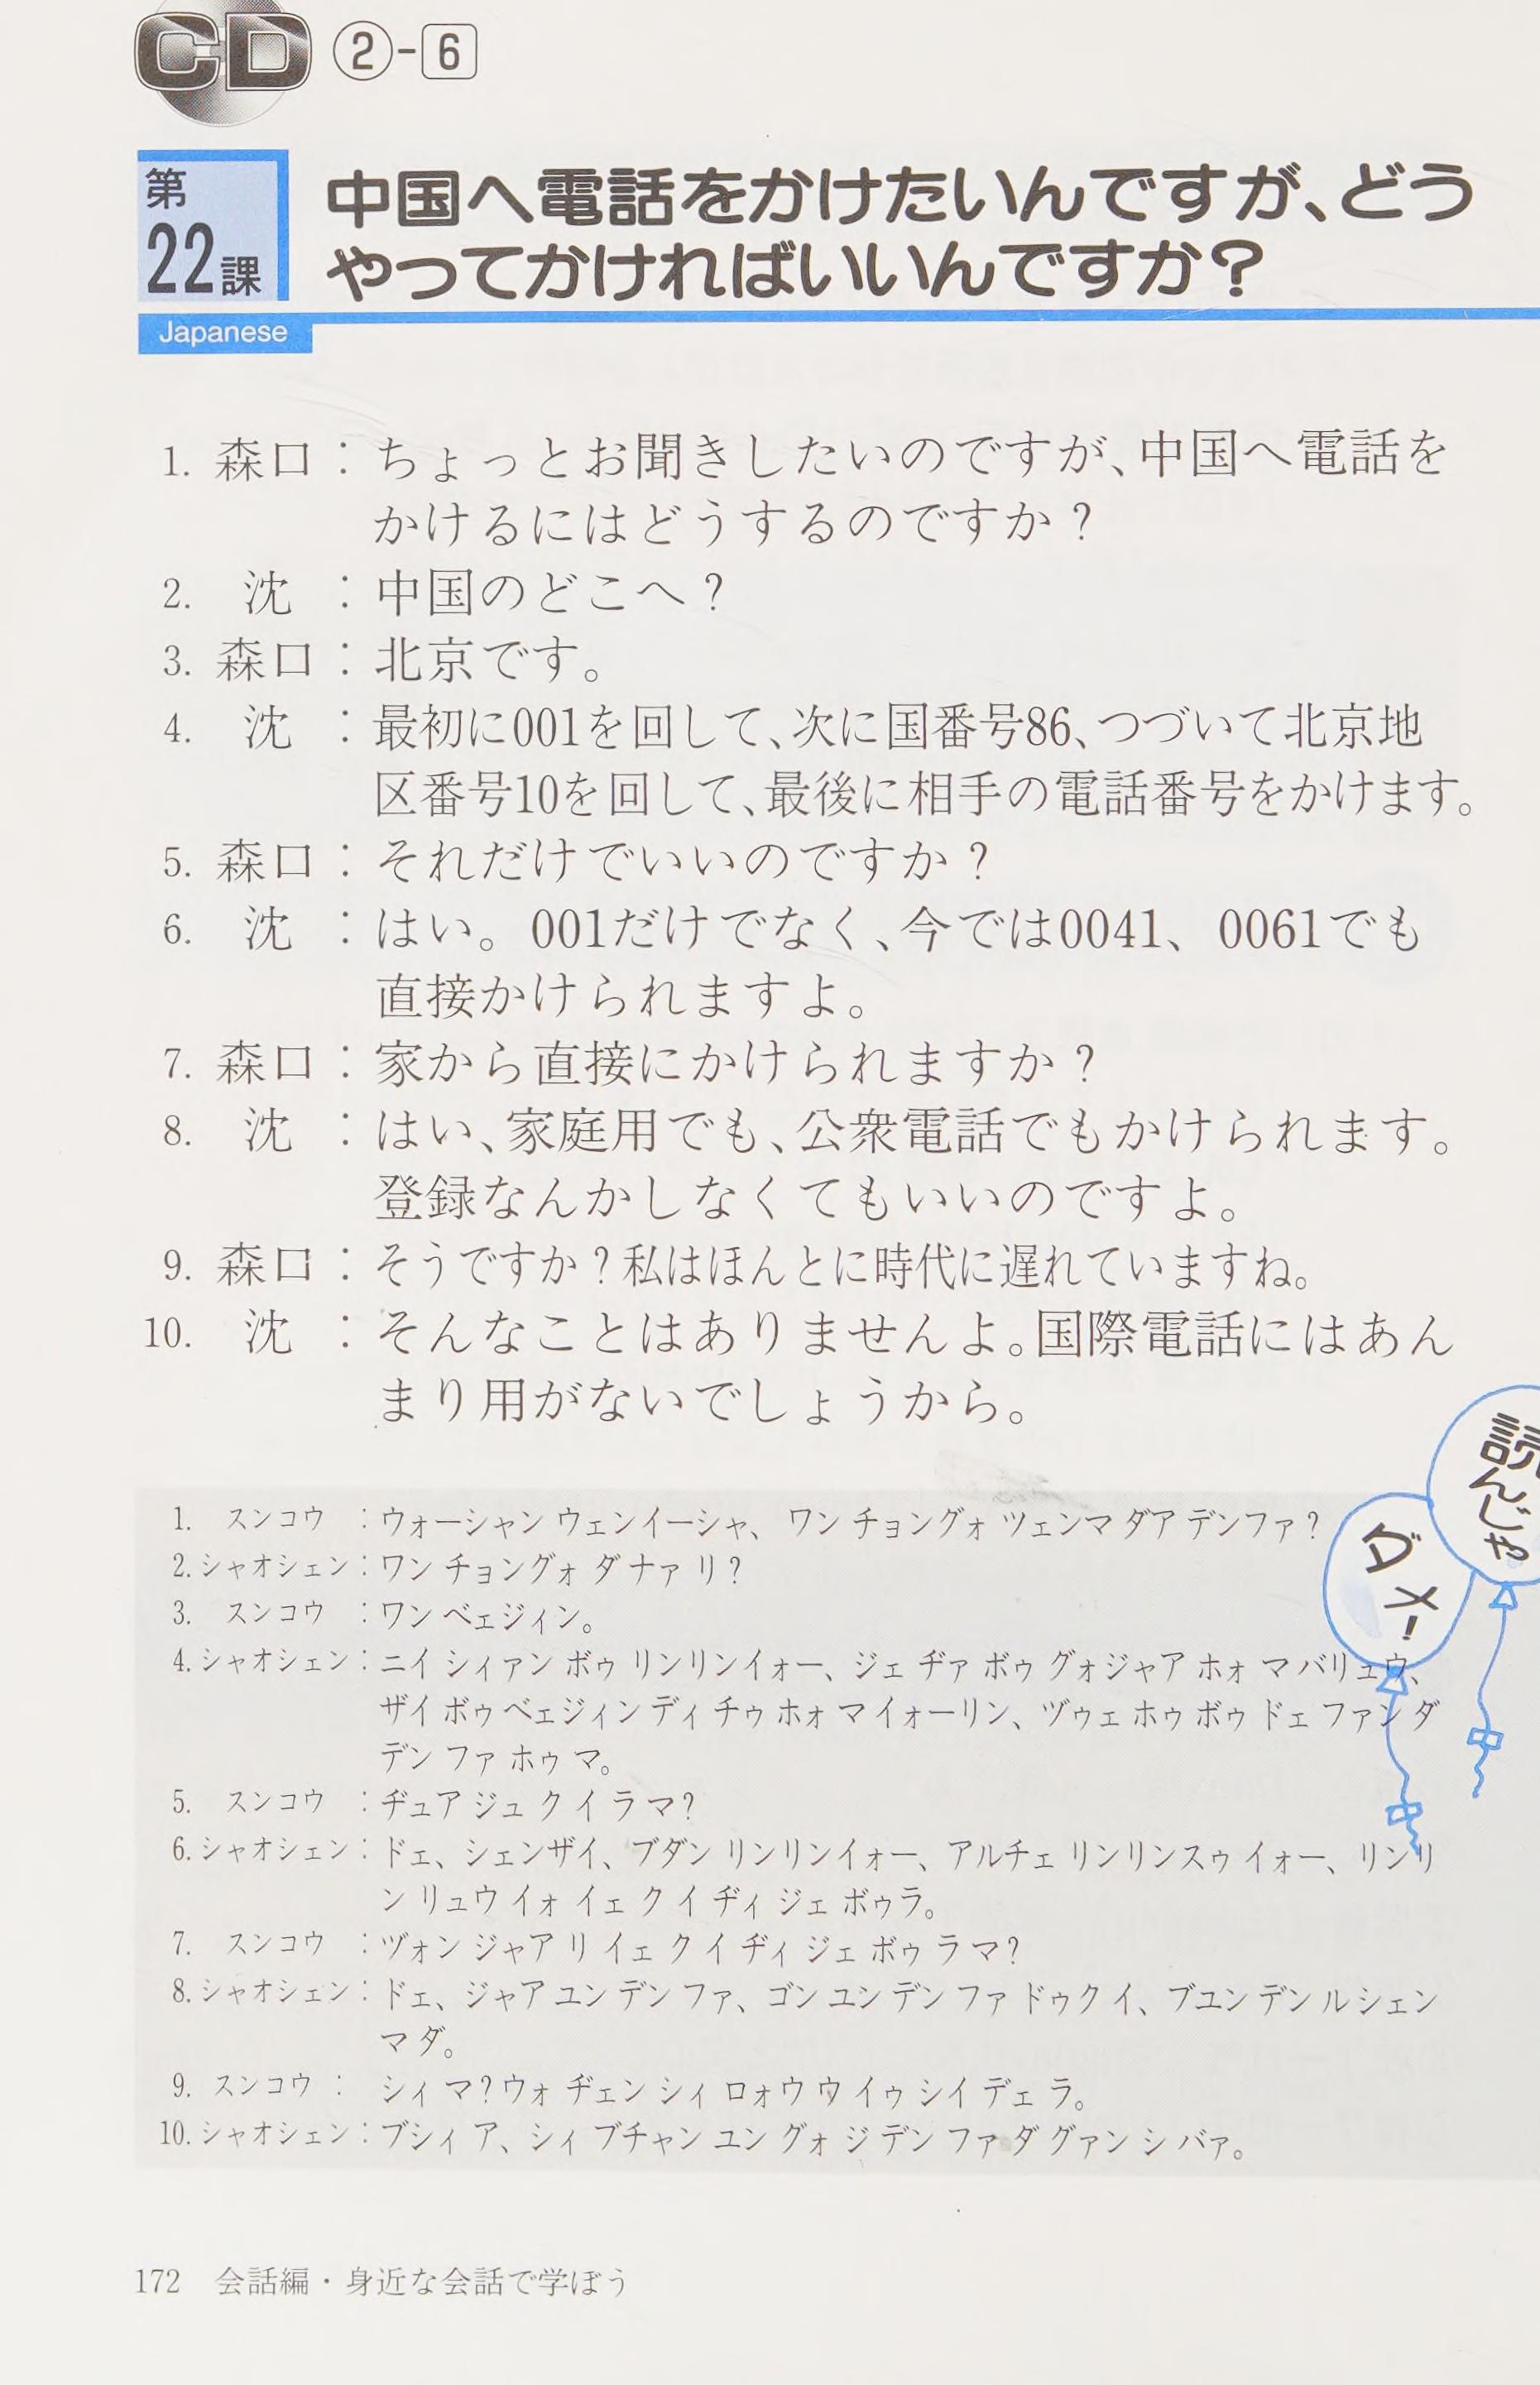 CD ②-6
第22課
中国へ電話をかけたいんですが、どう
やってかければいいんですか？
Japanese
1. 森口：ちょっとお聞きしたいのですが、中国へ電話を
かけるにはどうするのですか？
2. 沈：中国のどこへ？
3. 森口：北京です。
4. 沈：最初に001を回して、次に国番号86、つづいて北京地
区番号10を回して、最後に相手の電話番号をかけます。
5. 森口：それだけでいいのですか？
6. 沈：はい。001だけでなく、今では0041、0061でも
直接かけられますよ。
7. 森口：家から直接にかけられますか？
8. 沈：はい、家庭用でも、公衆電話でもかけられます。
登録なんかしなくてもいいのですよ。
9. 森口：そうですか？私はほんとに時代に遅れていますね。
10. 沈：そんなことはありませんよ。国際電話にはあん
まり用がないでしょうから。
読んじゃ
ダメ！
1. スンコウ：ウォーシャン ウェンイーシャ、ワン チョングォ ツェンマ ダア デンファ？
2. シャオシェン：ワン チョングォ ダ ナァ リ？
3. スンコウ：ワン ベェジィン。
4. シャオシェン：ニイ シィァン ボゥ リンリンイォー、ジェ ヂァ ボゥ グォジャア ホォ マ バリュウ、
ザイ ボゥ ベェジィン ディ チゥ ホォ マ イォーリン、ヅゥェ ホゥ ボゥ ドェ ファン ダ
デン ファ ホゥ マ。
5. スンコウ：ヂュア ジュ ク イ ラ マ？
6. シャオシェン：ドェ、シェンザイ、ブダン リンリンイォー、アルチェ リンリンスゥ イォー、リンリ
ン リュウ イォ イェ ク イ ヂィ ジェ ボゥラ。
7. スンコウ：ヅォン ジャア リ イェ ク イ ヂィ ジェ ボゥ ラ マ？
8. シャオシェン：ドェ、ジャア ユン デン ファ、ゴン ユン デン ファ ドゥク イ、ブユン デン ル シェン
マ ダ。
9. スンコウ：シィ マ？ウォ ヂェン シィ ロォウ ウ イゥ シイ デェ ラ。
10. シャオシェン：ブシィ ア、シィ ブチャン ユン グォ ジ デン ファ ダ グァン シ バァ。
172 会話編・身近な会話で学ぼう